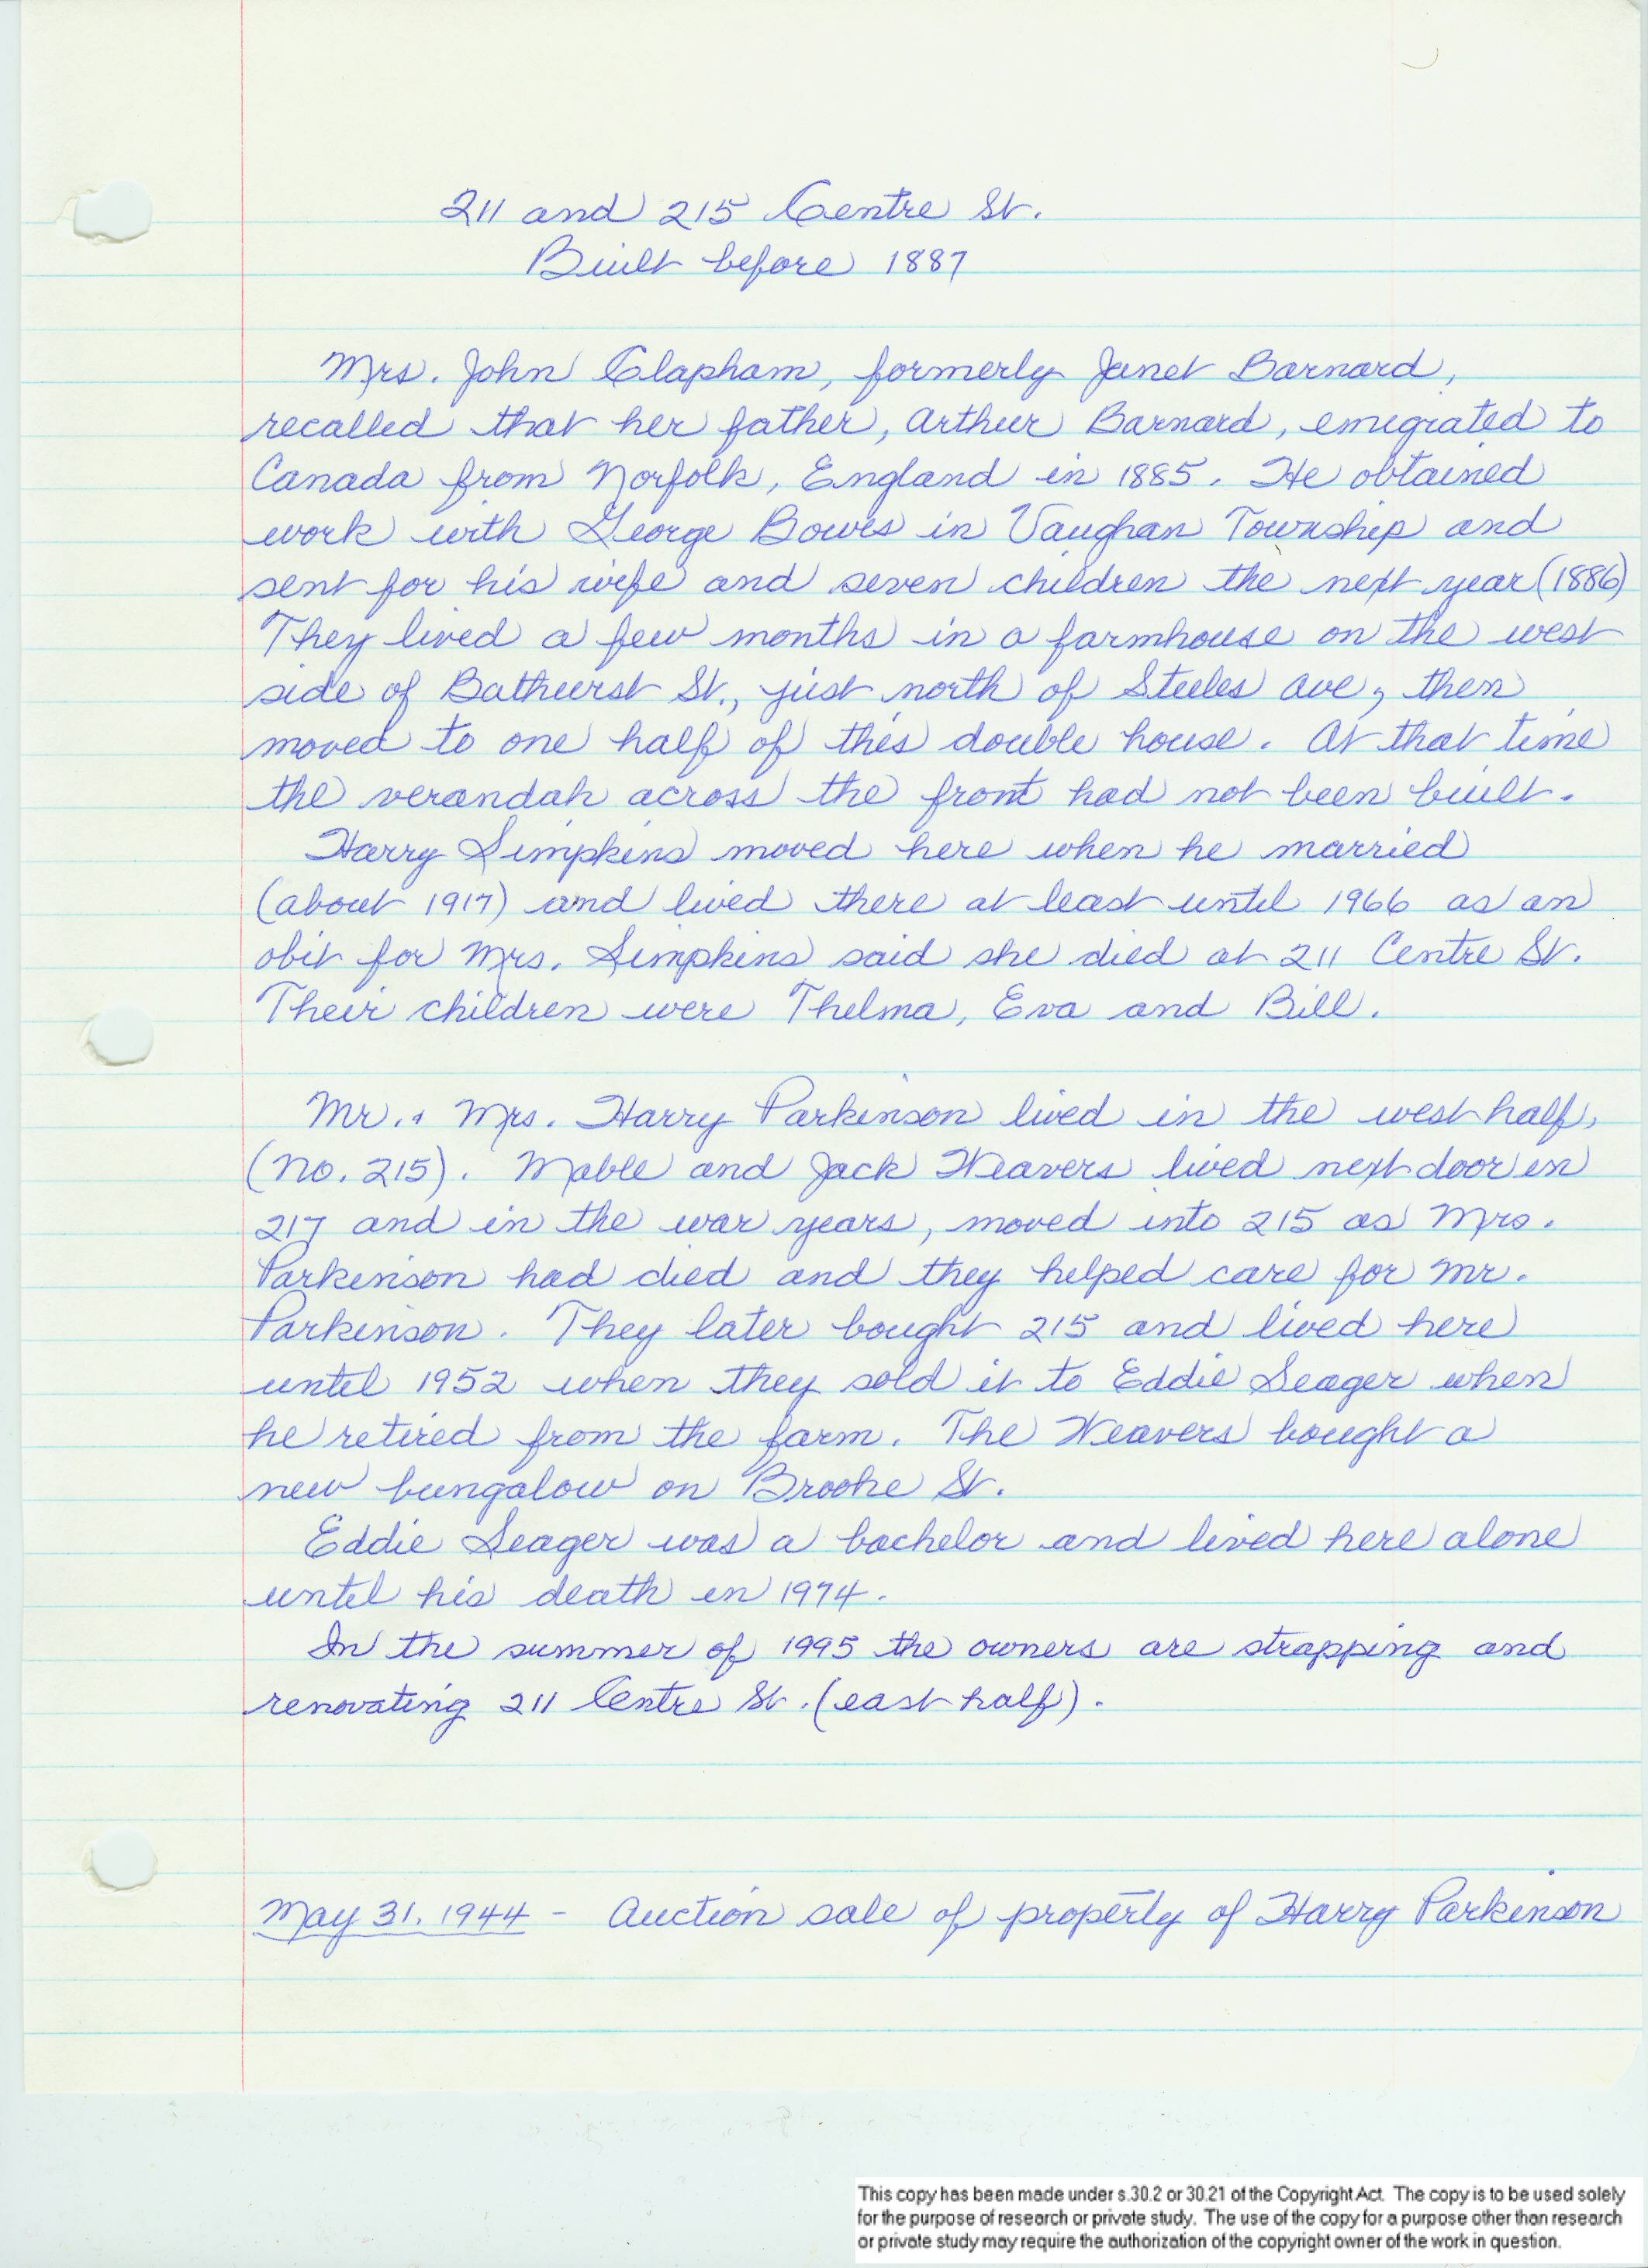 211 and 215 Centre St.
Built before 1887
Mrs. John Clapham, formerly Janet Barnard,
recalled that her father, Arthur Barnard, emigrated to
Canada from Norfolk, England in 1885. He obtained
work with George Bowes in Vaughan Township and
sent for his wife and seven children the next year (1886)
They lived a few months in a farmhouse on the west
side of Bathurst St., just north of Steeles Ave, then
moved to one half of this double house. At that time
the verandah across the front had not been built.
Harry Simpkins moved here when he married
(about 1917) and lived there at least until 1966 as an
obit for Mrs. Simpkins said she died at 211 Centre St.
Their children were Thelma, Eva and Bill.
Mr. & Mrs. Harry Parkinson lived in the west half,
(No. 215). Mable and Jack Weavers lived next door in
217 and in the war years, moved into 215 as Mrs.
Parkinson had died and they helped care for Mr.
Parkinson. They later bought 215 and lived here
until 1952 when they sold it to Eddie Seager when
he retired from the farm. The Weavers bought a
new bungalow on Brooke St.
Eddie Seager was a bachelor and lived here alone
until his death in 1974.
In the summer of 1995 the owners are strapping and
renovating 211 Centre St. (east half).
May 31, 1944 - Auction sale of property of Harry Parkinson
This copy has been made under s.30.2 or 30.21 of the Copyright Act. The copy is to be used solely
for the purpose of research or private study. The use of the copy for a purpose other than research
or private study may require the authorization of the copyright owner of the work in question.